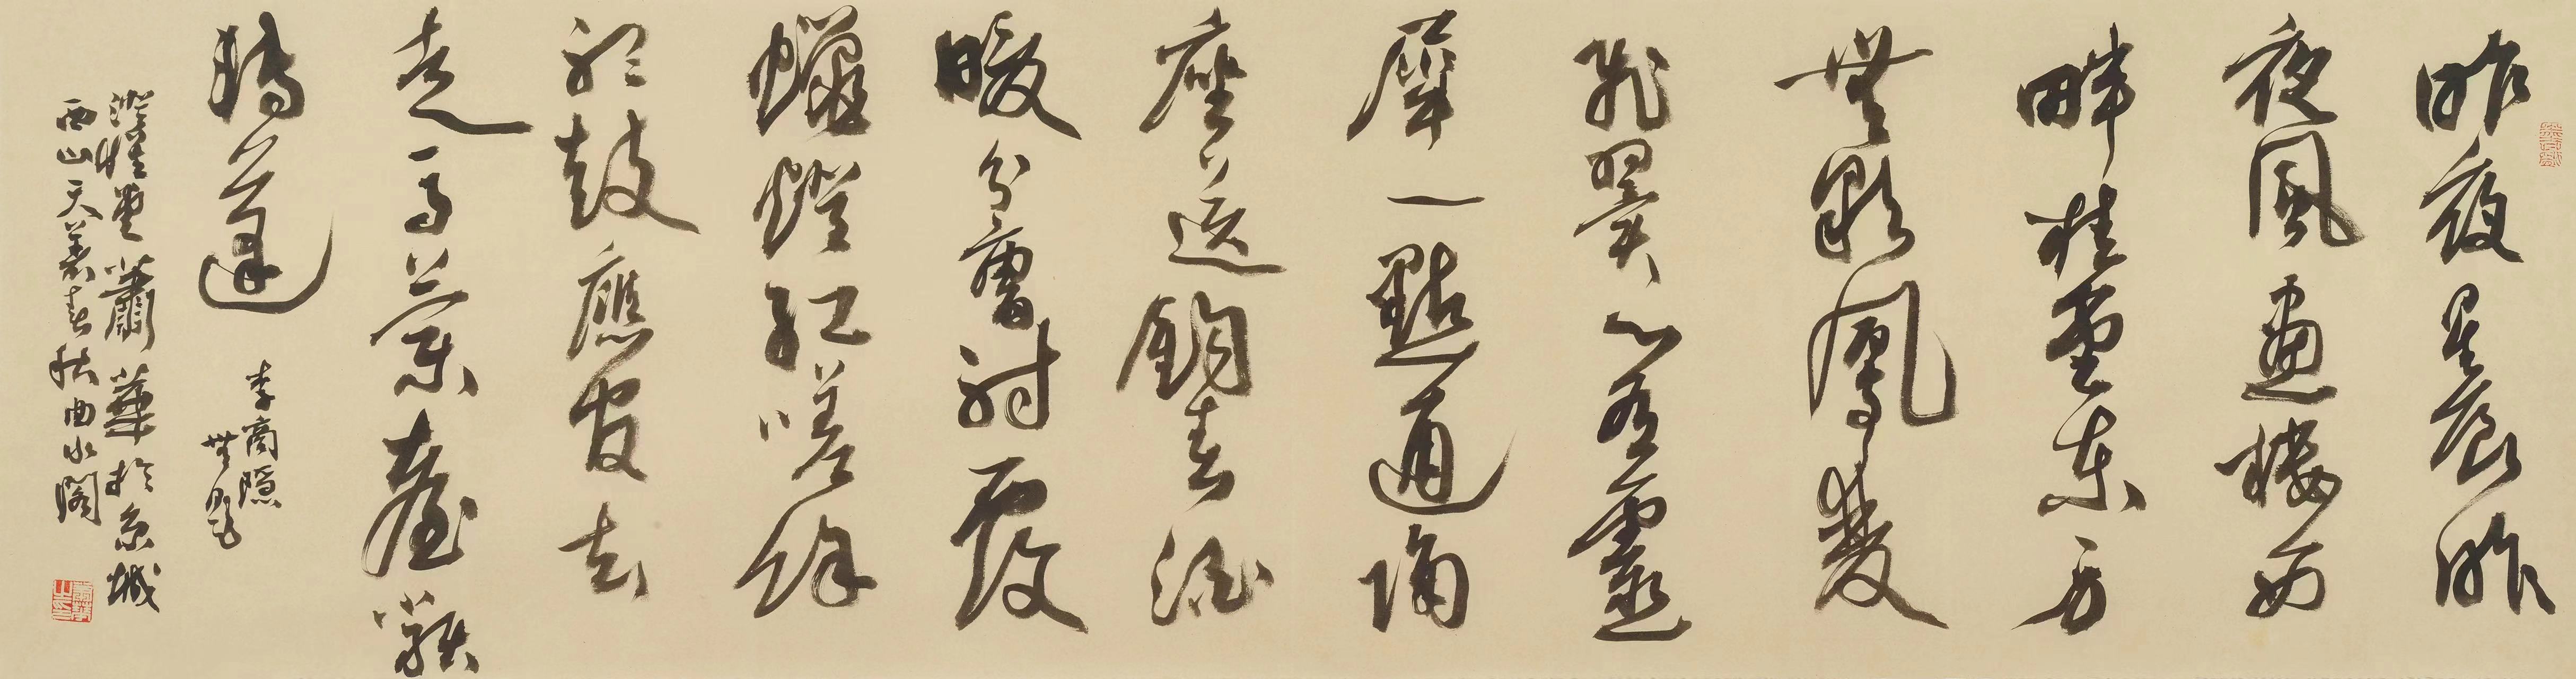 昨夜星辰昨
夜風畫樓西
畔桂堂東身
無彩鳳雙
飛翼心有靈
犀一點通隔
座送鉤春酒
暖分曹射覆
蠟燈紅嗟余
聽鼓應官去
走馬蘭臺類
轉蓬
李商隱
無題
澄懷堂蕭華於京城
西山天著春秋曲水閣
蕭華之印